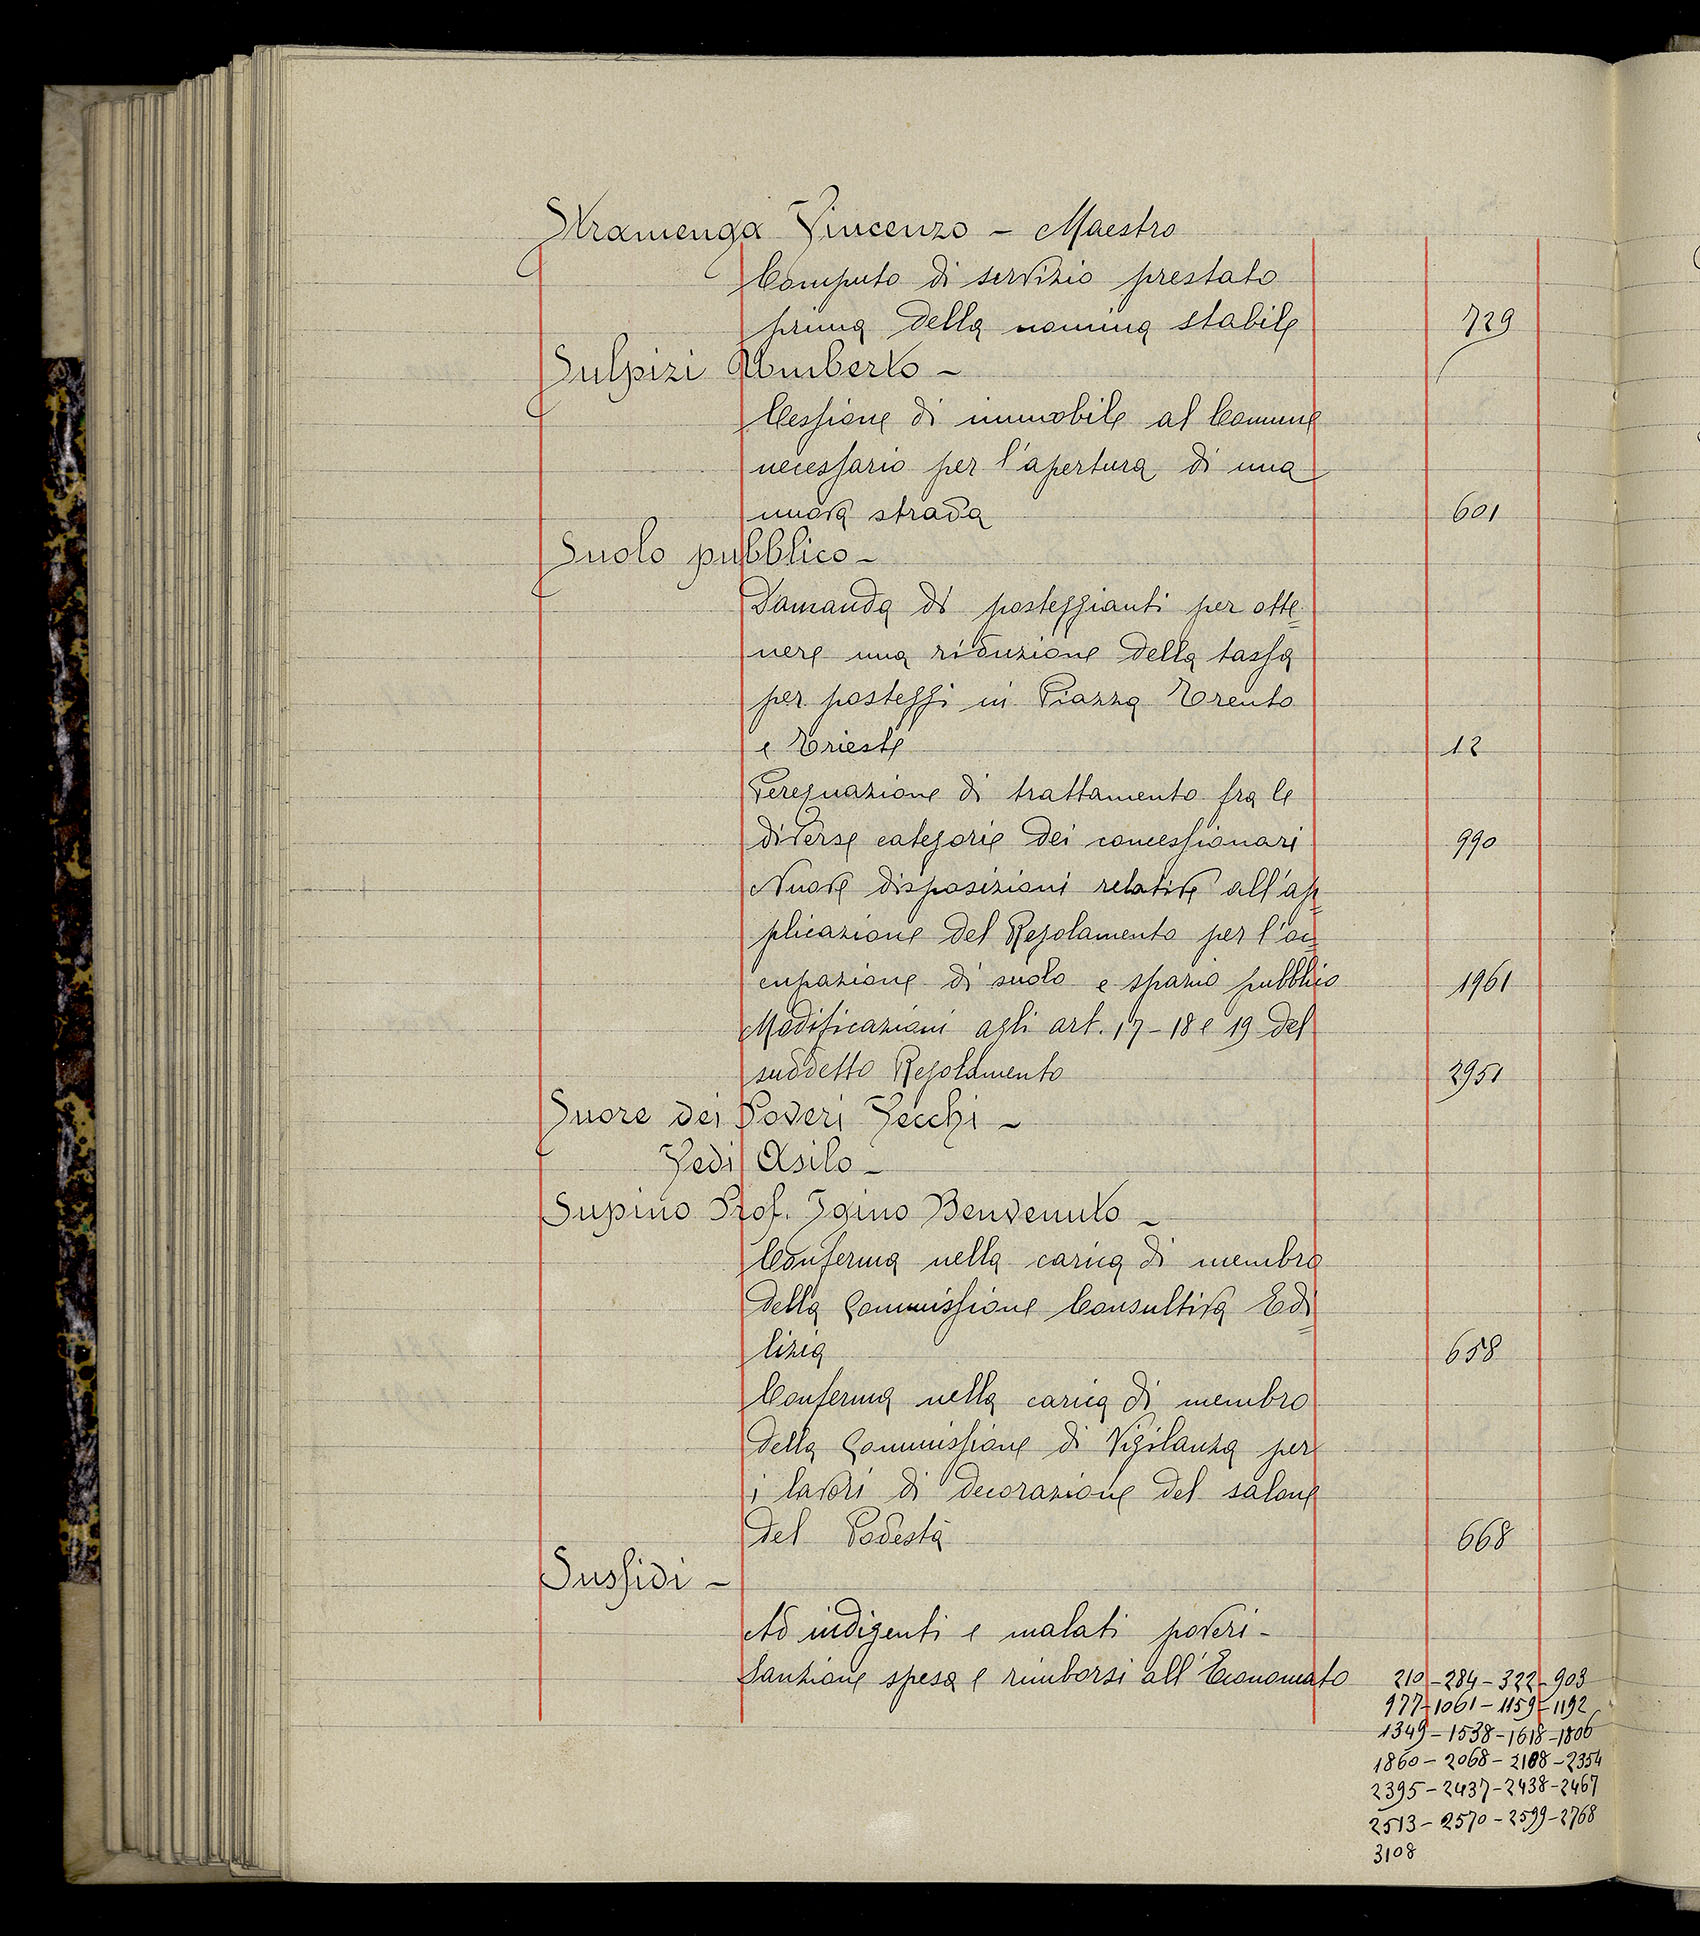 Stramenga Vincenzo - Maestro
Computo di servizio prestato
prima della nomina stabile 729
Sulpizi Umberto -
Cessione di immobile al Comune
necessario per l'apertura di una
nuova strada 601
Suolo pubblico -
Domanda di posteggianti per otte=
nere una riduzione della tassa
per posteggi in Piazza Trento
e Trieste 12
Perequazione di trattamento fra le
diverse categorie dei concessionari 990
Nuove disposizioni relative all'ap=
plicazione del Regolamento per l'oc=
cupazione di suolo e spazio pubblico 1961
Modificazioni agli art. 17-18 e 19 del
suddetto Regolamento 2951
Suore dei Poveri Vecchi -
Vedi Asilo -
Supino Prof. Igino Benvenuto -
Conferma nella carica di membro
della Commissione Consultiva Edi=
lizia 658
Conferma nella carica di membro
della Commissione di Vigilanza per
i lavori di decorazione del salone
del Podestà 668
Sussidi -
Ad indigenti e malati poveri -
Sanzione spesa e rimborsi all'Economato 210-284-322-903
977-1061-1159-1192
1349-1538-1618-1806
1860-2068-2108-2354
2395-2437-2438-2467
2513-2570-2599-2768
3108